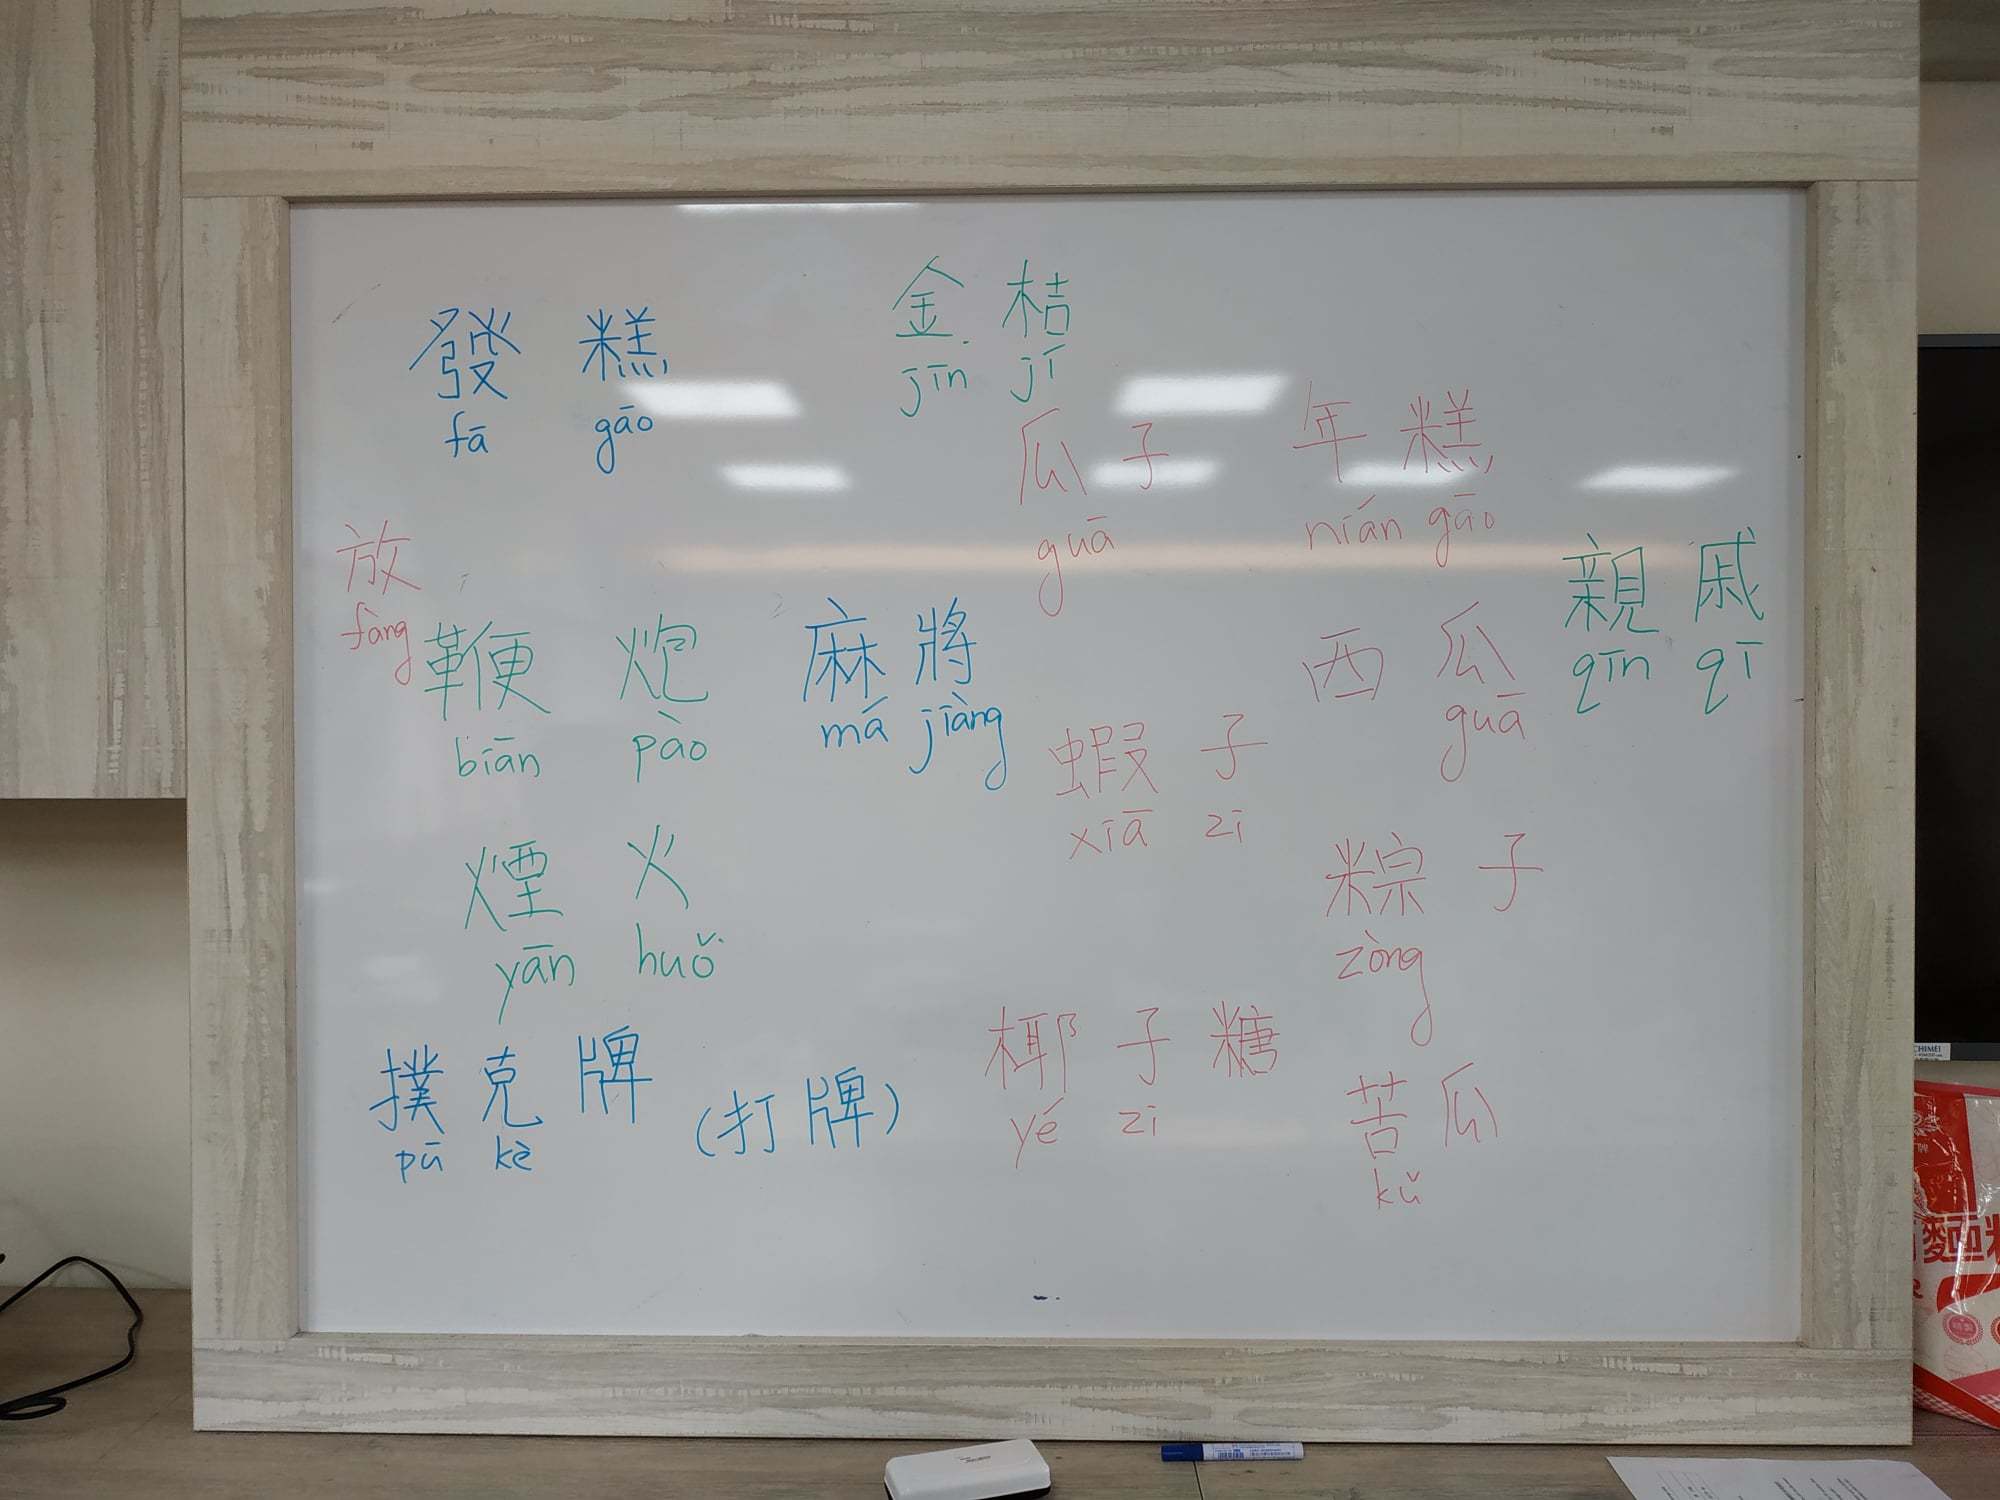 金桔
jīn jí
發糕
fā gāo
瓜子
guā
年糕
nián gāo
放
fàng
親戚
qīn qī
鞭炮
biān pào
麻將
má jiàng
西瓜
guā
蝦子
xiā zi
煙火
yān huǒ
粽子
zòng
撲克牌
pū kè
(打牌)
椰子糖
yé zi
苦瓜
kǔ
CHIMEI
麵粉